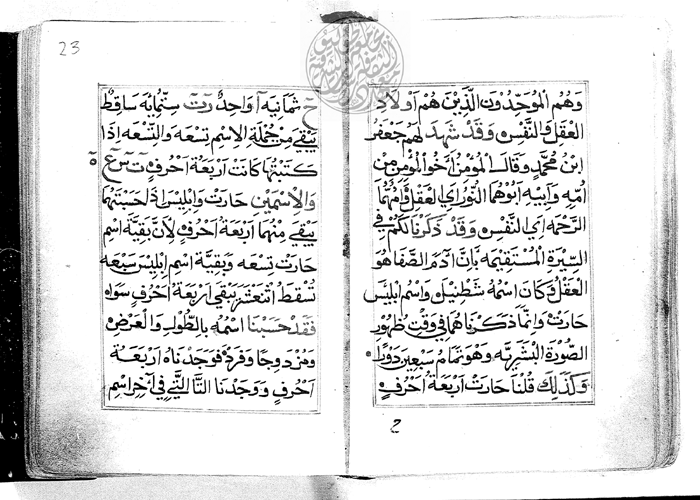 وَهُمُ الْمُوَحِّدُونَ الَّذِيْنَ هُمْ أَوْلَادُ
الْعَقِلِ وَالنَّفْسِ وَقَدْ شَهِدَ لَهُمْ جَعْفَرُ
ابْنُ مُحَمَّدٍ وَقَالَ الْمُؤْمِنُ أَخُو الْمُؤْمِنِ مِنْ
اُمِّهِ وَاَبِيْهِ اَبُوْهُمَا النُّوْرُ اي الْعَقِلُ وَاُمُّهُمَا
الرَّحْمَه اي النَّفْسِ وَقَدْ ذَكَرْنَا لَكُمْ فِي
السِّيْرَةِ الْمُسْتَقِيْمَه بِاَنَّ ادَمَ الصَّفَا هُوَ
الْعَقِلُ وَكَانَ اسْمُهُ شَطْنِيْلَ وَاسْمُ ابْلِيْسَ
حَارَتْ وَانَّمَا ذَكَرْنَا هُمَا فِي وَقْتِ ظُهُوْرِ
الصُّوْرَةِ الْبَشَرِيَّه وَهُوَ تَمَامُ سَبْعِيْنَ دَوْرًا
وَكَذٰلِكَ قُلْنَا حَارَتْ اَرْبَعَةُ اَحْرُفٍ
2
23
ح ثَمَانِيَه آ وَاحِدْ رَتَ سِتُّمِايَه سَاقِطْ
يَبْقَى مِنْ جُمْلَةِ الْاِسْمِ تِسْعَه وَالتِّسْعَه اِذَا
كَتَبْتَهَا كَانَتْ اَرْبَعَةَ اَحْرُفٍ ت س ع ه
وَالْاِسْمَيْنِ حَارَتْ وَاِبْلِيْسَ اذَا حَسَبْتَهُمَا
يَبْقَى مِنْهُمَا اَرْبَعَةُ اَحْرُفٍ لِاَنَّ بَقِيَّةَ اسْمِ
حَارَتْ تِسْعَه وَبَقِيَّةَ اسْمِ اِبْلِيْسَ سَبْعَه
تُسْقِطُ اثْنَعْشَرَ يَبْقَى اَرْبَعَةُ اَحْرُفٍ سَوَاه
فَقَدْ حَسَبْنَا اسْمُهُ بِالطُّوْلِ وَالْعَرْضِ
وَمُزْدَوِجًا وَفَرْدً فَوَجَدْنَاهُ اَرْبَعَةَ
اَحْرُفٍ وَوَجَدْنَا التَّا الَّتِي فِي آخِرِ اسْمِ